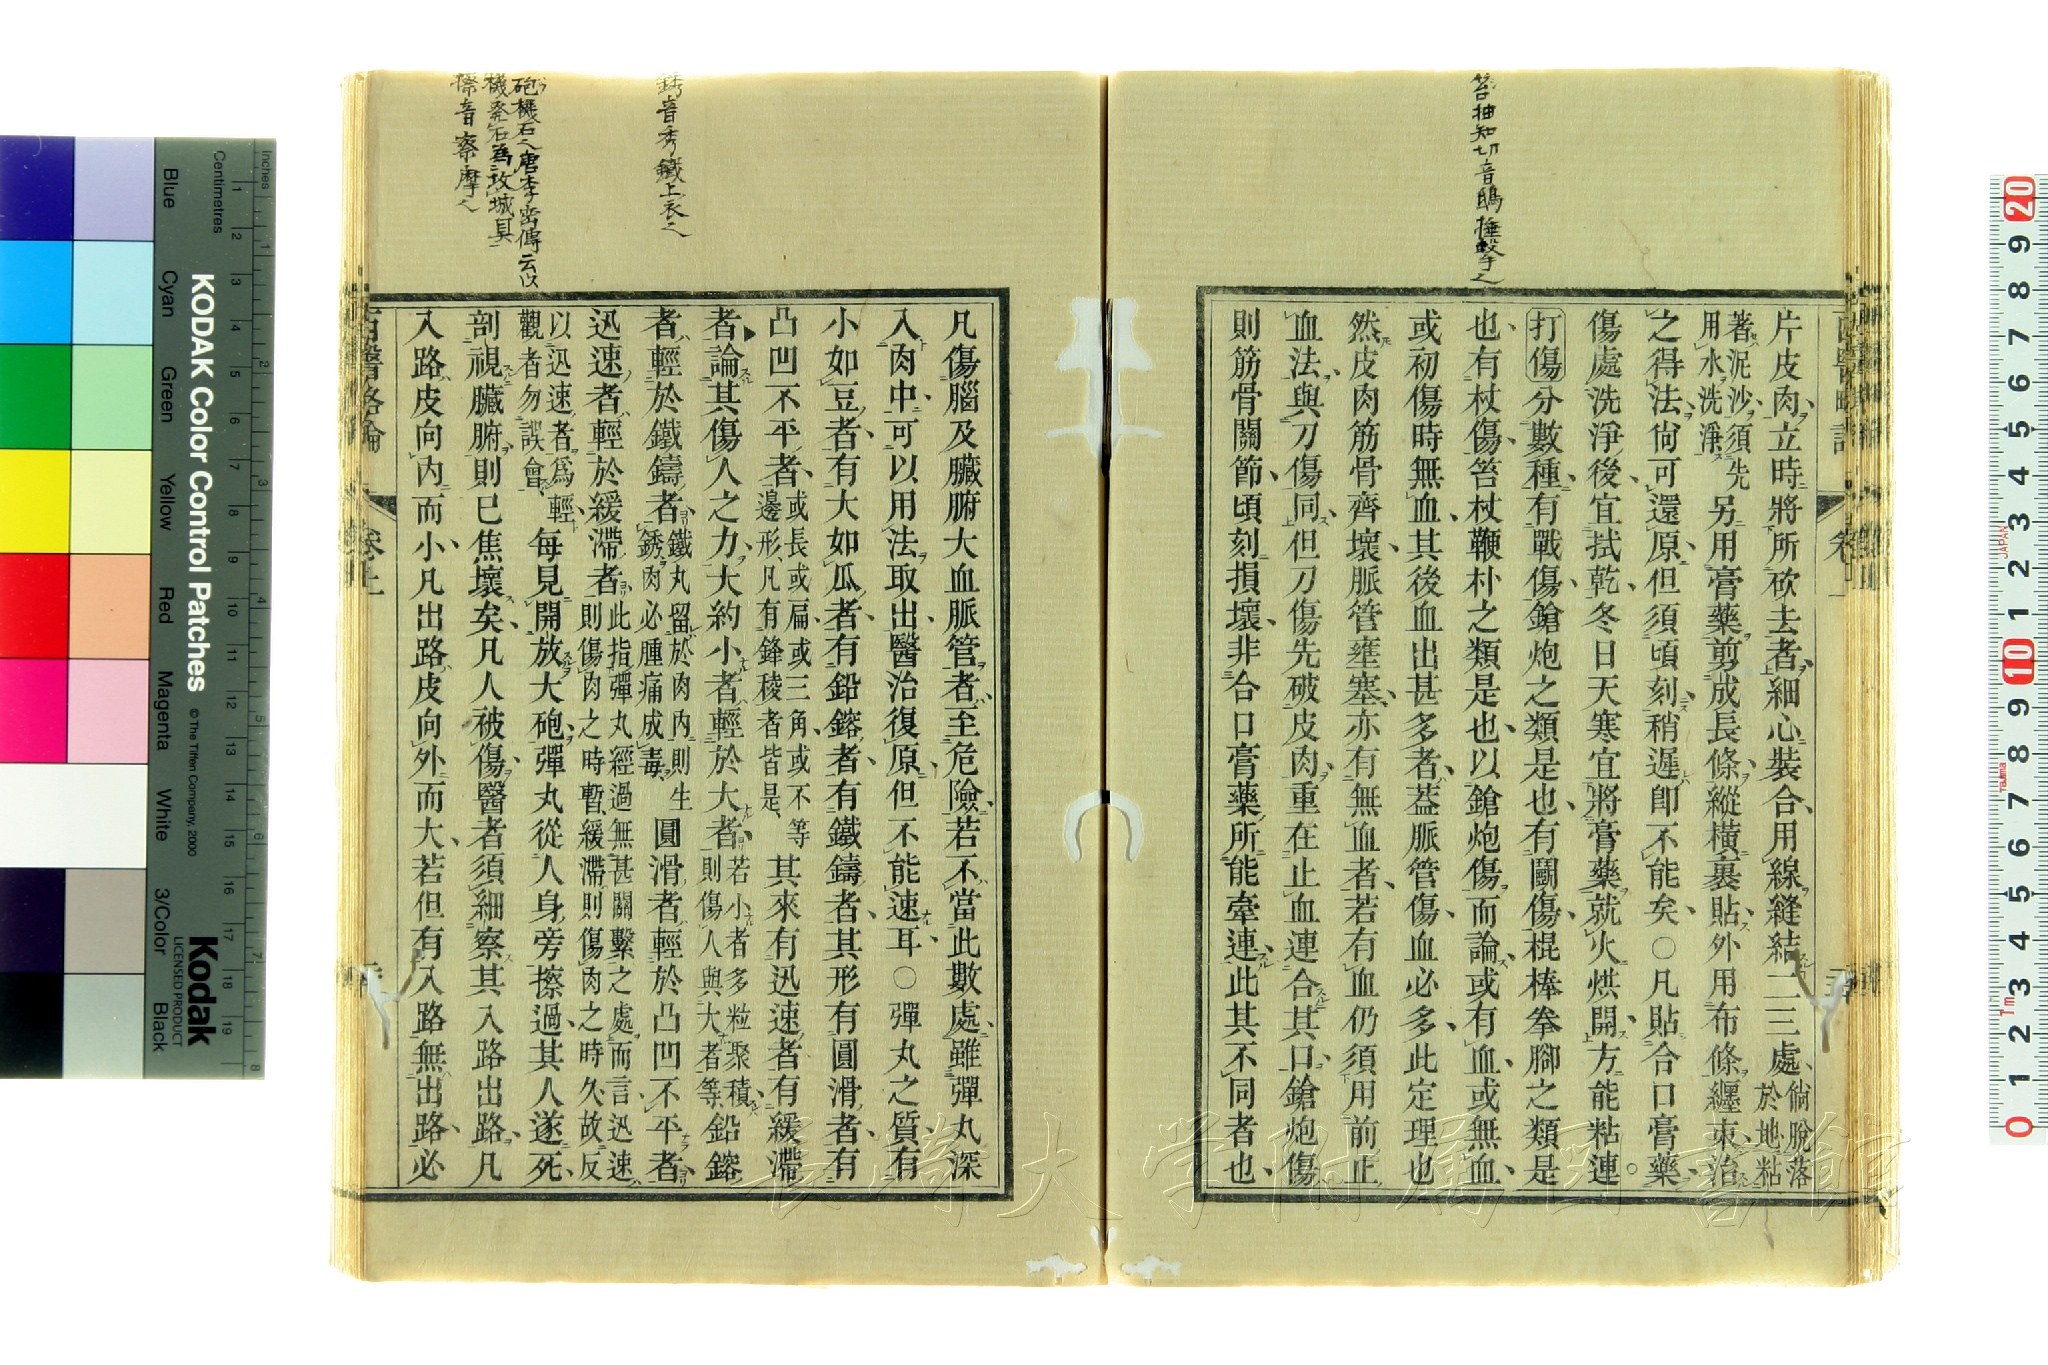 笞抽知切音鴟捶擊也
片皮肉立時將所砍去者細心裝合用線縫結二三處倘脫落於地粘
著泥沙須先用水洗淨另用膏藥剪成長條縱橫裹貼外用布條纏束治
之得法尙可還原但須頃刻稍遲卽不能矣○凡貼合口膏藥
傷處洗淨後宜拭乾冬日天寒宜將膏藥就火烘開方能粘連
打傷分數種有戰傷鎗炮之類是也有鬭傷棍棒拳腳之類是
也有杖傷笞杖鞭朴之類是也以鎗炮傷而論或有血或無血
或初傷時無血其後血出甚多者葢脈管傷血必多此定理也
然皮肉筋骨齊壞脈管壅塞亦有無血者若有血仍須用前止
血法與刀傷同但刀傷先破皮肉重在止血連合其口鎗炮傷
則筋骨關節頃刻損壞非合口膏藥所能牽連此其不同者也
銹音秀鐵上衣也
砲機石也唐李密傳云以
機發石為攻城具
擦音察摩也
凡傷腦及臟腑大血脈管者至危險若不當此數處雖彈丸深
入肉中可以用法取出醫治復原但不能速耳○彈丸之質有
小如豆者有大如瓜者有鉛鎔者有鐵鑄者其形有圓滑者有
凸凹不平者或長或扁或三角或不等邊形凡有鋒稜者皆是其來有迅速者有緩滯
者論其傷人之力大約小者輕於大者若小者多粒聚積則傷人與大者等鉛鎔
者輕於鐵鑄者鐵丸留於肉內則生銹肉必腫痛成毒圓滑者輕於凸凹不平者
迅速者輕於緩滯者此指彈丸經過無甚關繫之處而言迅速則傷肉之時暫緩滯則傷肉之時久故反
以迅速者爲輕觀者勿誤會每見開放大砲彈丸從人身旁擦過其人遂死
剖視臟腑則已焦壞矣凡人被傷醫者須細察其入路出路凡
入路皮向內而小凡出路皮向外而大若但有入路無出路必
西醫略論
卷上
KODAK Color Control Patches
© The Tiffen Company, 2000
Kodak
LICENSED PRODUCT
Inches
Centimetres
Blue
Cyan
Green
Yellow
Red
Magenta
White
3/Color
Black
長崎大学附属図書館
JAPAN